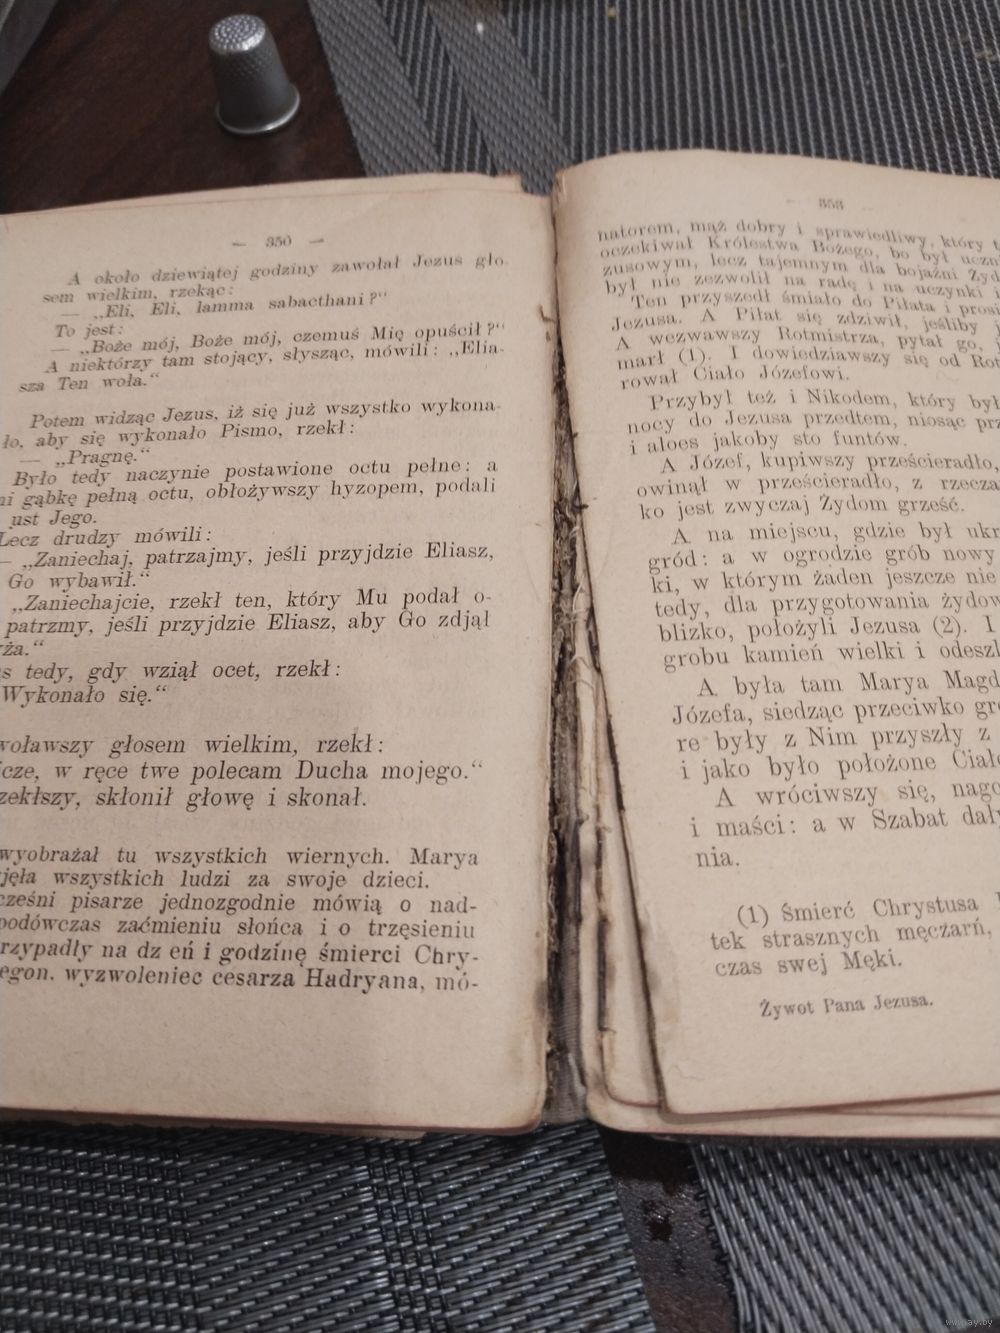 — 350 —
A około dziewiątej godziny zawołał Jezus gło-
sem wielkim, rzekąc:
— „Eli, Eli, lamma sabacthani?“
To jest:
— „Boże mój, Boże mój, czemuś Mię opuścił?“
A niektórzy tam stojący, słysząc, mówili: „Elia-
sza Ten woła.“
Potem widząc Jezus, iż się już wszystko wykona-
ło, aby się wykonało Pismo, rzekł:
— „Pragnę.“
Było tedy naczynie postawione octu pełne: a
ni gąbkę pełną octu, obłożywszy hyzopem, podali
ust Jego.
Lecz drudzy mówili:
— „Zaniechaj, patrzajmy, jeśli przyjdzie Eliasz,
Go wybawił.“
„Zaniechajcie, rzekł ten, który Mu podał o-
patrzmy, jeśli przyjdzie Eliasz, aby Go zdjął
ża.“
s tedy, gdy wziął ocet, rzekł:
Wykonało się.“
woławszy głosem wielkim, rzekł:
icze, w ręce twe polecam Ducha mojego.“
zekłszy, skłonił głowę i skonał.
wyobrażał tu wszystkich wiernych. Marya
jęła wszystkich ludzi za swoje dzieci.
cześni pisarze jednozgodnie mówią o nad-
podówczas zaćmieniu słońca i o trzęsieniu
rzypadły na dz eń i godzinę śmierci Chry-
egon, wyzwoleniec cesarza Hadryana, mó-
— 353
natorem, mąż dobry i sprawiedliwy, który t
oczekiwał Królestwa Bożego, bo był uczni
zusowym, lecz tajemnym dla bojaźni Żyd
był nie zezwolił na radę i na uczynki i
Ten przyszedł śmiało do Piłata i prosi
Jezusa. A Piłat się zdziwił, jeśliby j
A wezwawszy Rotmistrza, pytał go, j
marł (1). I dowiedziawszy się od Rot
rował Ciało Józefowi.
Przybył też i Nikodem, który był
nocy do Jezusa przedtem, niosąc prz
i aloes jakoby sto funtów.
A Józef, kupiwszy prześcieradło,
owinął w prześcieradło, z rzecza
ko jest zwyczaj Żydom grześć.
A na miejscu, gdzie był ukr
gród: a w ogrodzie grób nowy
ki, w którym żaden jeszcze nie
tedy, dla przygotowania żydow
blizko, położyli Jezusa (2). I
grobu kamień wielki i odeszł
A była tam Marya Magd
Józefa, siedząc przeciwko gro
re były z Nim przyszły z
i jako było położone Ciało
A wróciwszy się, nago
i maści: a w Szabat dały
nia.
(1) Śmierć Chrystusa
tek strasznych męczarń,
czas swej Męki.
Żywot Pana Jezusa.
www.ay.by